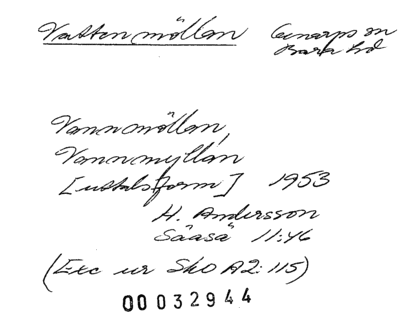 Vattenmöllan Genarps sn
Bara hd
Vannmöllan,
Vannmyllan
[uttalsform] 1953
H. Andersson
Sääsä 11:46
(Exc ur SkO A2:115)
00032944